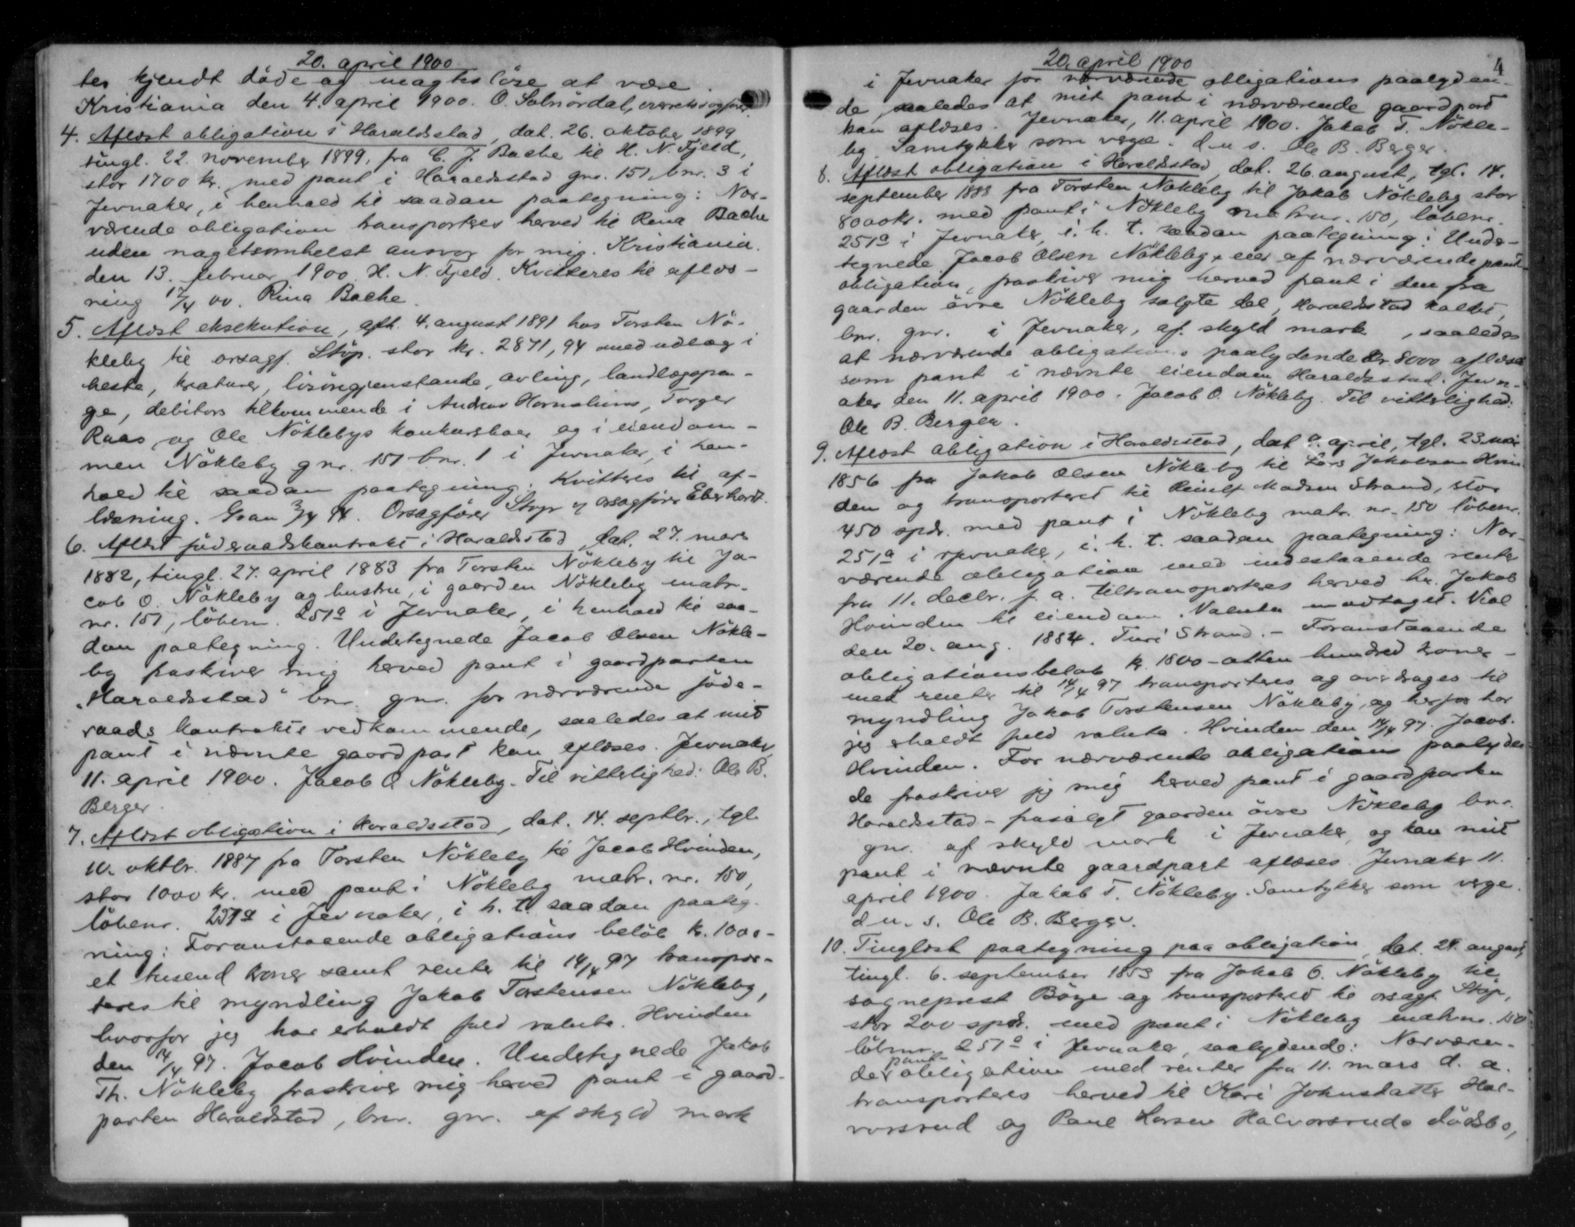 20. april 1900
tes kjendt døde og magtesløse at være.
Kristiania den 4. april 1900. O. Solnørdal, overretssagfører.
4. Aflæst obligation i Haraldstad, dat. 26. oktober 1899
tingl. 22. november 1899, fra C. J. Bache til H. N. Fjeld,
stor 1700 kr. med pant i Haraldsstad gnr. 151, bnr. 3 i
Jevnaker, i henhold til saadan paategning: Nær-
værende obligation transporteres herved til Rina Bache
uden nogetsomhelst ansvar for mig. Kristiania.
den 13. februar 1900. H. N. Fjeld. Kvitteres til aflæs-
ning 17/4 00. Rina Bache.
5. Aflæst eksekution, afh. 4. august 1891 hos Torsten Nø-
kleby til orsagf. Støp. stor kr. 2871,94 med udlæg i
heste, kreaturer, løsøregjenstande, avling, landlægspen-
ge, debitors tilkommende i Andreas Hornslins, Torger
Raas og Ole Nøklebys konkursboer og i eiendom-
men Nøkleby gnr. 151 bnr. 1 i Jevnaker, i hen-
hold til saadan paategning: Kvitteres til af-
læsning. Gran 3/4 94. Orsagfører Støp ved orsagfører Eberhardt.
6. Aflæst føderaadskontrakt i Haraldstad, dat. 27. mars
1882, tingl. 27. april 1883 fra Torsten Nøkleby til Ja-
cob O. Nøkleby og hustru, i gaarden Nøkleby matr.
nr. 151, løbenr. 251a i Jevnaker, i henhold til saa-
dan paategning. Undertegnede Jacob Olsen Nøkle-
by fraskriver mig herved pant i gaardparten
"Haraldsstad" bnr. gnr. for nærværende føde-
raads kontrakts vedkommende, saaledes at mit
pant i nævnte gaardpart kan aflæses. Jevnaker
11. april 1900. Jacob O Nøkleby. Til vitterlighed: Ole B.
Berger.
7. Aflæst obligation i Haraldsstad, dat. 14. septbr., tgl.
10. oktbr. 1887 fra Torsten Nøkleby til Jacob Hvinden,
stor 1000 kr. med pant i Nøkleby matr. nr. 150,
løbenr. 251a i Jevnaker, i h. t. saadan paateg-
ning: Foranstaaende obligations beløb kr. 1000-
et tusend kroner samt renter til 14/4 97 transpor-
teres til myndling Jakob Torstensen Nøkleby,
hvorfor jeg har erholdt fuld valuta. Hvinden
den 14/4 97. Jacob Hvinden. Undertegnede Jakob
Th. Nøkleby fraskriver mig herved pant i gaard-
parten Haraldstad, bnr. gnr. af skyld mark
4
20. april 1900
i Jevnaker for nærværende obligations paalyden-
de, saaledes at mit pant i nærværende gaardpart
kan aflæses. Jevnaker, 11. april 1900. Jakob T. Nøkle-
by. Samtykker som verge. d. u. s. Ole B. Berger.
8. Aflæst obligation i Haraldsstad, dat. 26. august, tgl. 14.
september 1883 fra Torsten Nøkleby til Jakob Nøkleby stor
8000 kr. med pant i Nøkleby matrnr. 150, løbenr.
251a i Jevnaker, i. h. t. saadan paategning: Under-
tegnede Jacob Olsen Nøkleby, eier af nærværende pant-
obligation, fraskriver mig herved pant i den fra
gaarden øvre Nøkleby solgte del, Haraldstad kaldet,
bnr. gnr. i Jevnaker, af skyld mark , saaledes
at nærværende obligations paalydende kr 8000 aflæses
som pant i nævnte eiendom Haraldsstad. Jevn-
aker den 11. april 1900. Jacob O. Nøkleby. Til vitterlighed:
Ole B. Berger.
9. Aflæst obligation i Haraldsstad, dat 9. april, tgl. 23. mai
1856 fra Jakob Olsen Nøkleby til Lars Jakobsen Hvin-
den og transporteret til Reinlf Madsen Strand, stor
450 spdr. med pant i Nøkleby matr. nr. 150 løbenr.
251a i Jevnaker, i. h. t. saadan paategning: Nær-
værende obligation med indestaaende renter
fra 11. decbr. f. a. tiltransporteres herved hr. Jakob
Hvinden til eiendom. Valuta modtaget. Viol
den 20. aug. 1884. Turi Strand. - Foranstaaende
obligationsbeløb kr. 1800 - atten hundred kroner -
med renter til 14/4 97 transporteres og overdrages til
myndling Jakob Torstensen Nøkleby, og herfor har
jeg erholdt fuld valuta. Hvinden den 14/4 97. Jacob
Hvinden. For nærværende obligations paalyden-
de fraskriver jeg mig herved pant i gaardparten
Haraldsstad - frasolgt gaarden øvre Nøkleby bnr.
gnr. af skyld mark i Jevnaker, og kan mit
pant i nævnte gaardpart aflæses. Jevnaker 11.
april 1900. Jakob T. Nøkleby. Samtykker som verge.
d. u. s. Ole B. Berger.
10. Tinglæst paategning paa obligation, dat. 24. august,
tingl. 6. september 1853 fra Jakob O. Nøkleby til
sogneprest Bøye og transporteret til orsagf. Støp,
stor 200 spdr. med pant i Nøkleby matrnr. 150
løbenr. 251a i Jevnaker, saalydende: Nærværen-
de pantobligation med renter fra 11. mars d. a.
transporteres herved til Kari Johnsdatter Hal-
vorsrud og Paul Larsen Halvorsruds dødsbo,